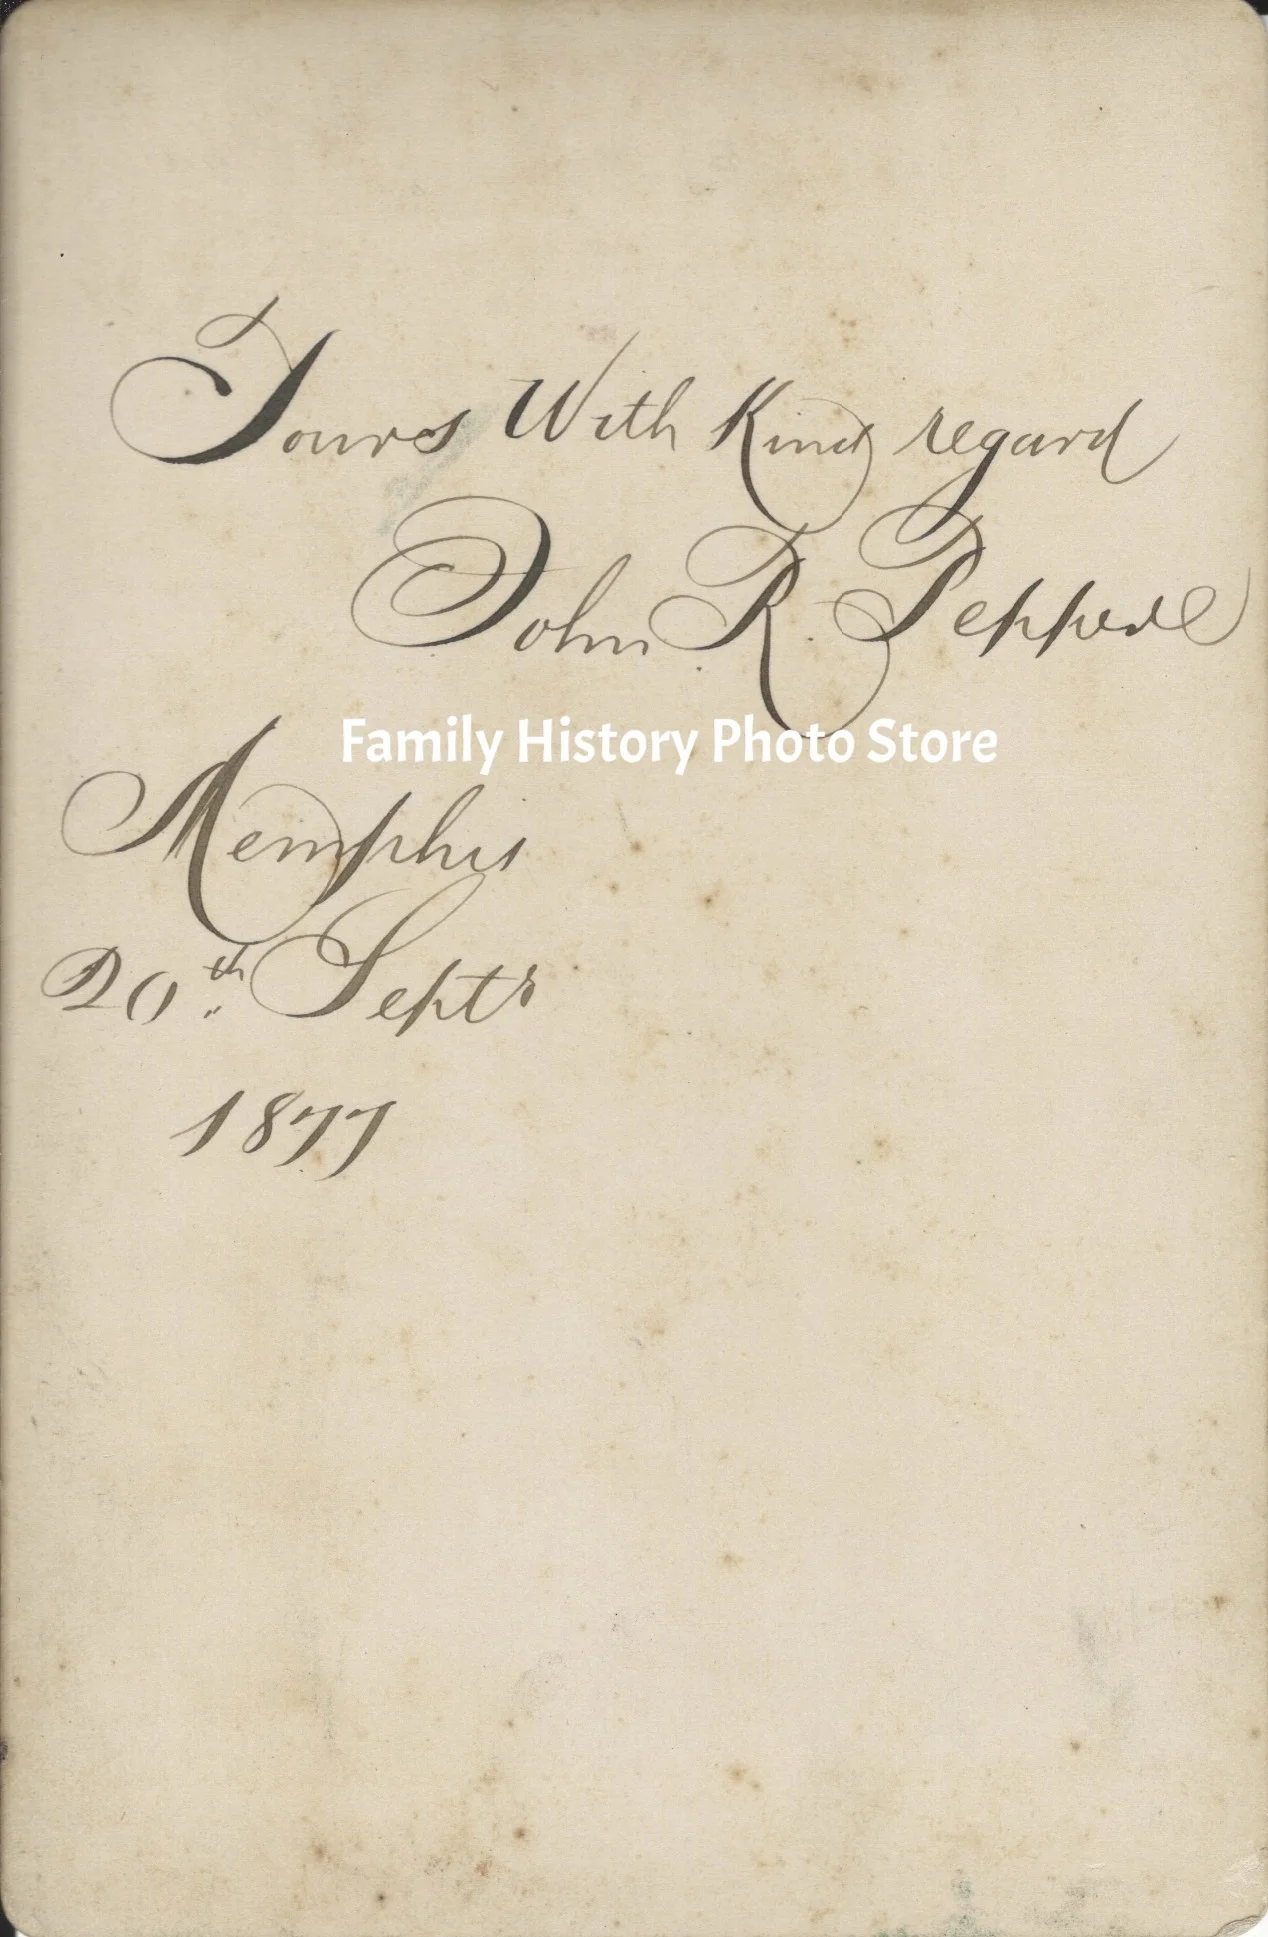 Yours With Kind regard
John R. Pepper
Family History Photo Store
Memphis
20th Septr
1877